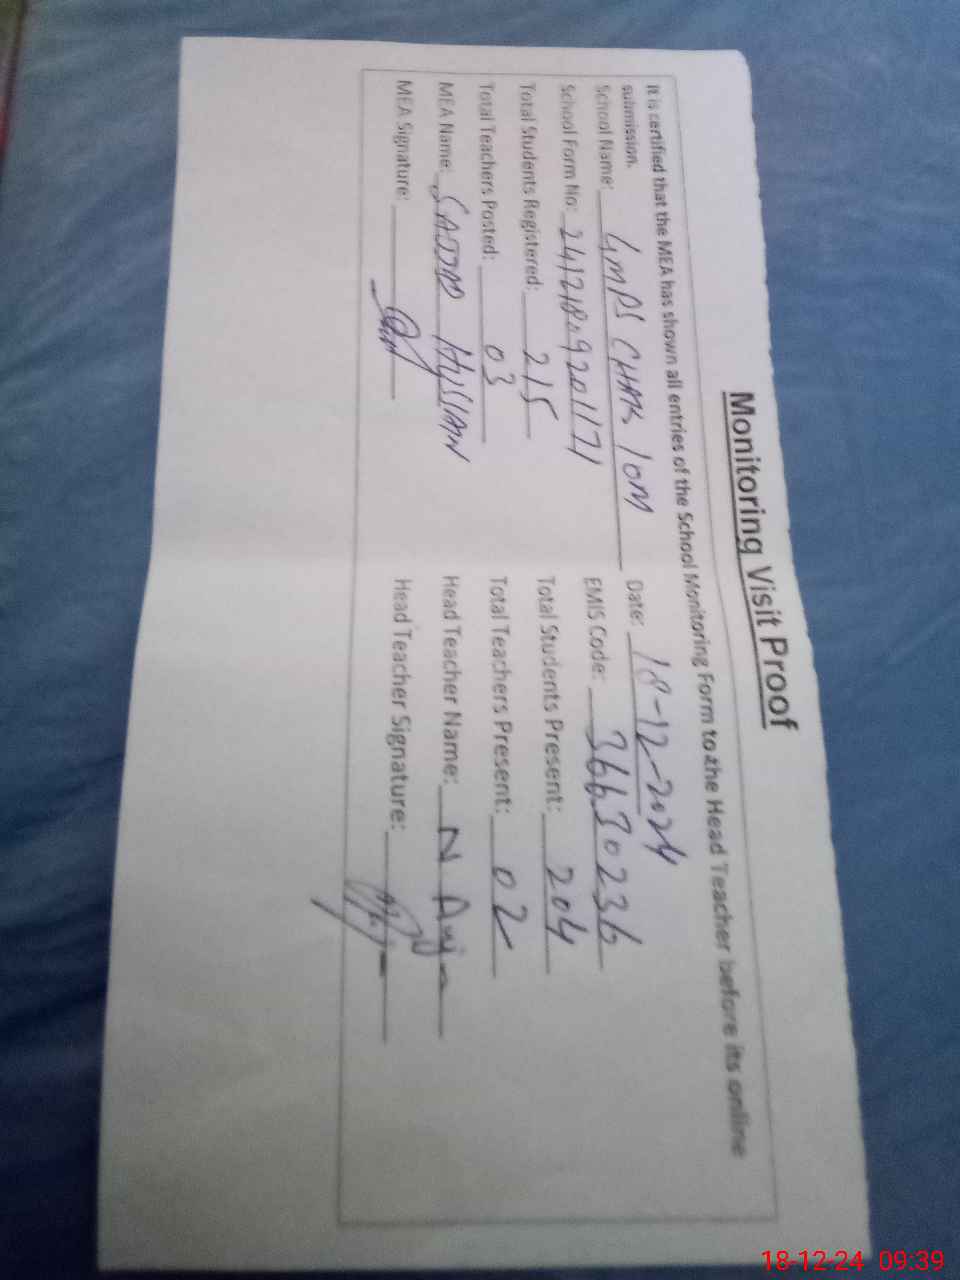 Monitoring Visit Proof
It is certified that the MEA has shown all entries of the School Monitoring Form to the Head Teacher before its online
submission.
School Name: GMPS CHAK 10M Date: 18-12-2024
School Form No: 241218 920117 EMIS Code: 36630236
Total Students Registered: 215 Total Students Present: 204
Total Teachers Posted: 03 Total Teachers Present: 02
MEA Name: SAJJAD HUSSAIN Head Teacher Name: N
MEA Signature: Head Teacher Signature:
18-12-24 09:39